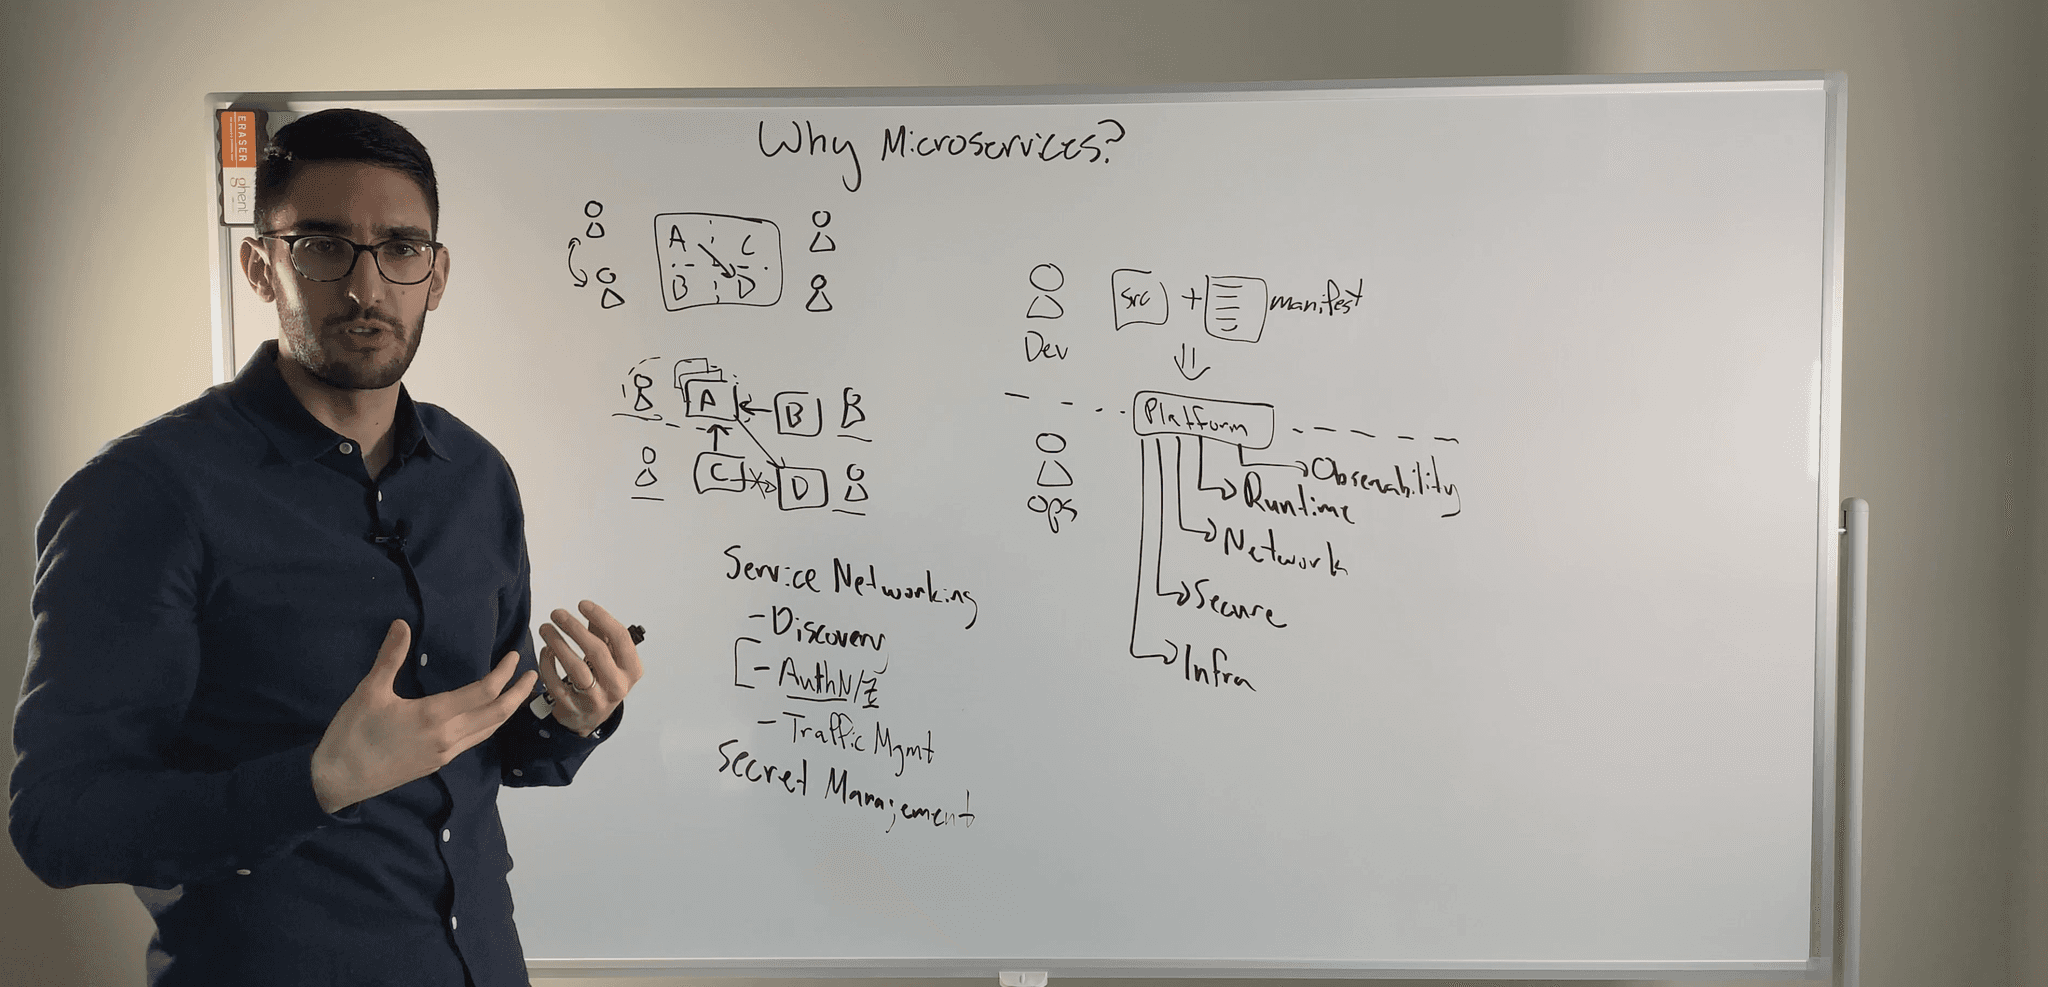 ERASER
ghent
Why Microservices?
A C
B D
A
B
C
D
Service Networking
- Discovery
- AuthN/Z
- Traffic Mgmt
Secret Management
Dev
src + manifest
Platform
Ops
Observability
Runtime
Network
Secure
Infra